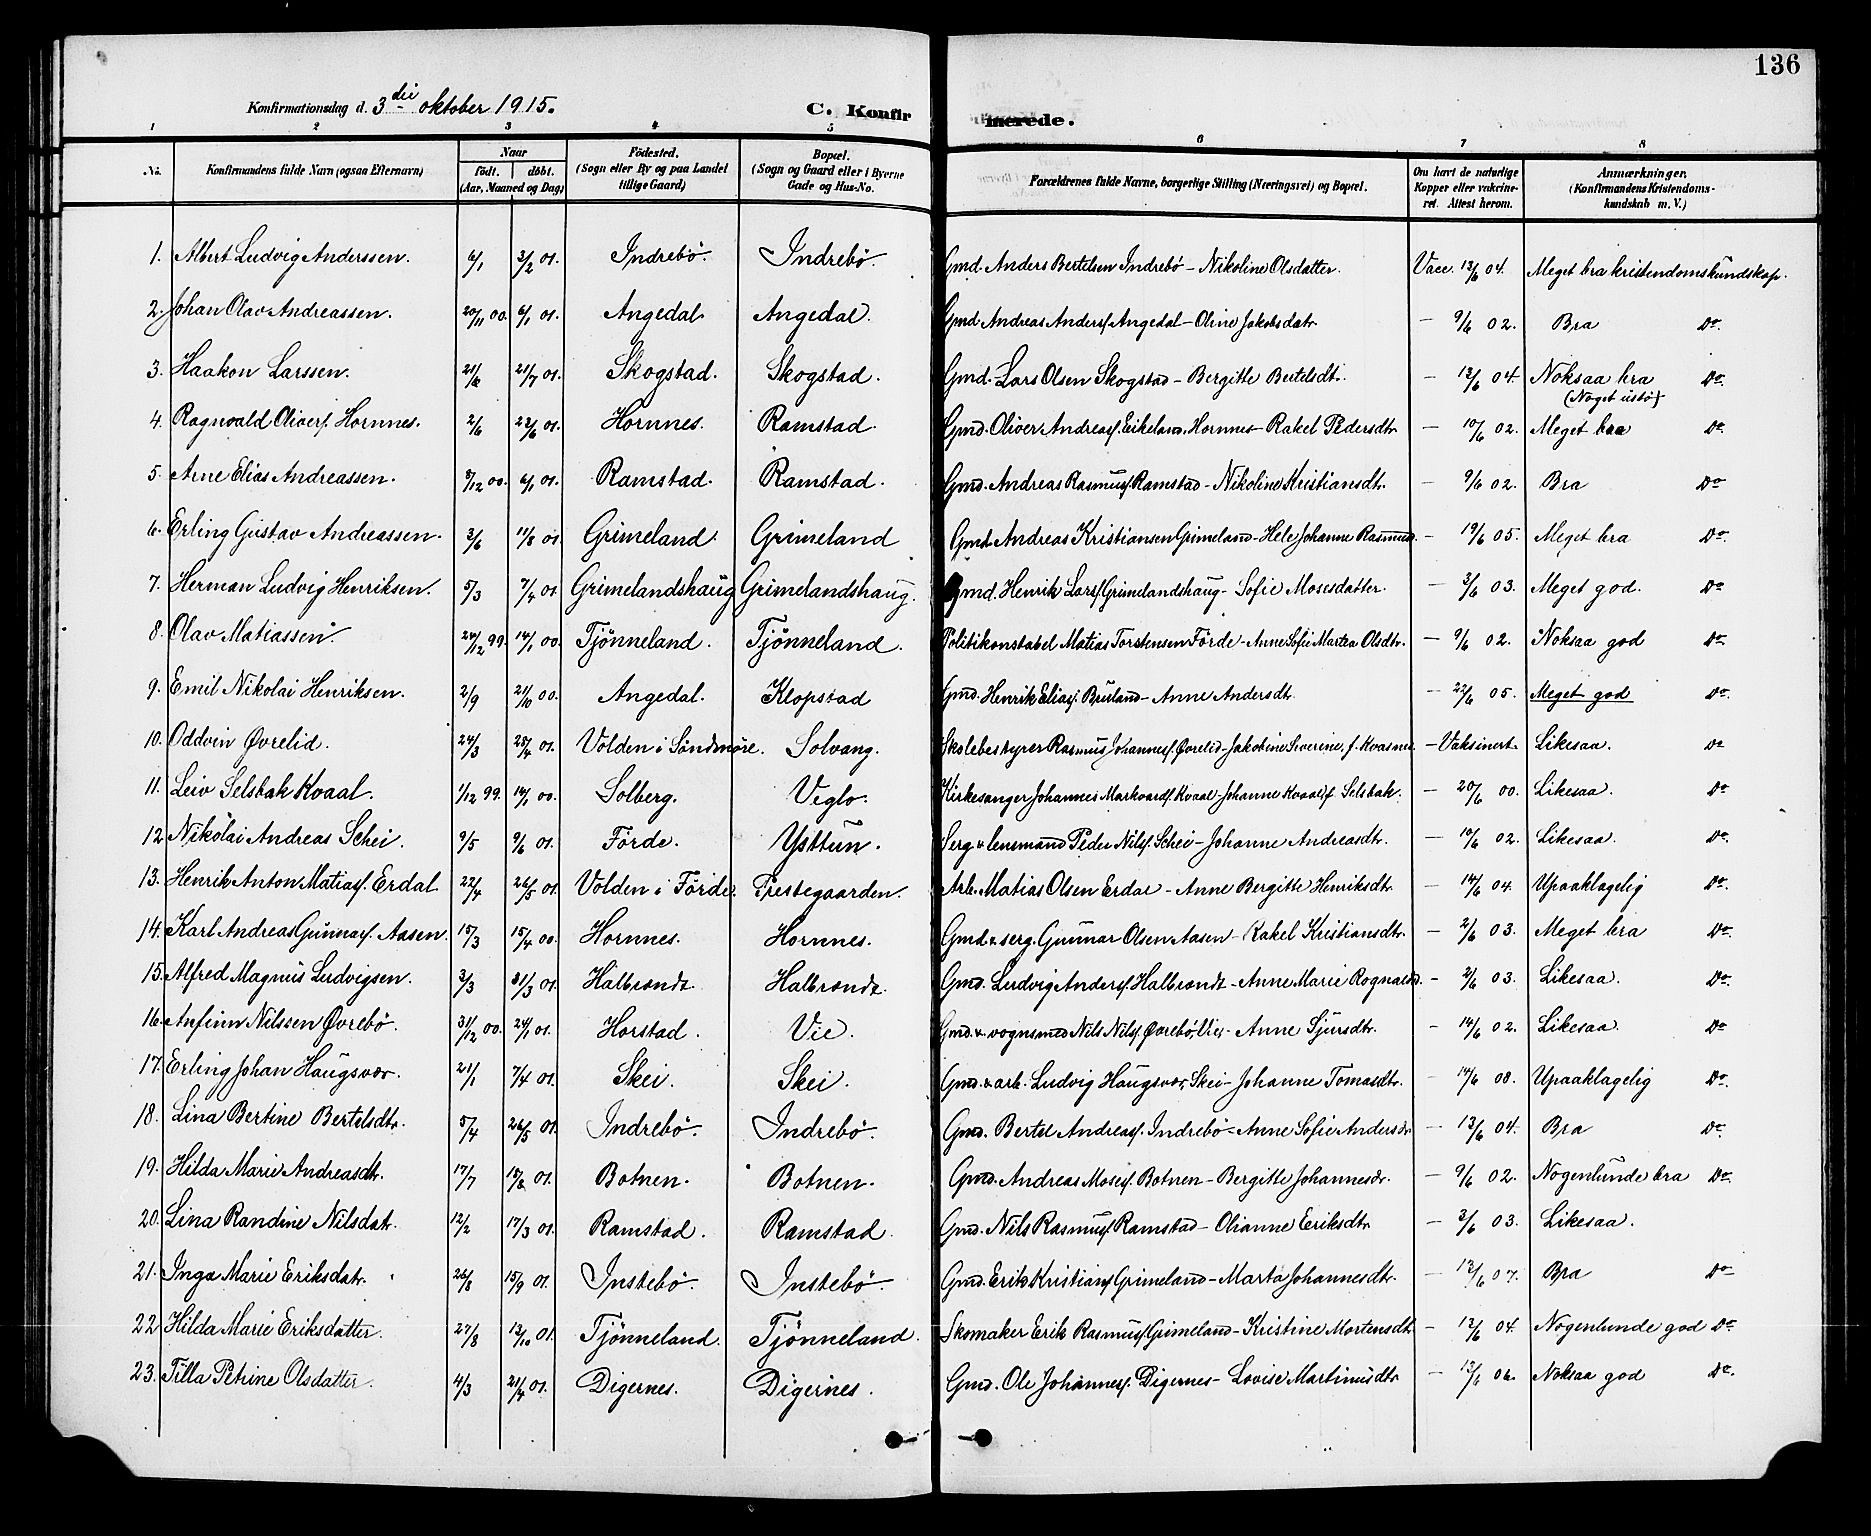 136
Konfirmationsdag d. 3die oktober 1915. C. Konfirmerede.
1 2 3 4 5 6 7 8
No. Konfirmandens fulde Navn (ogsaa Efternavn) Naar födt. döbt. (Aar, Maaned og Dag) Födested. (Sogn eller By og paa Landet tillige Gaard) Bopæl. (Sogn og Gaard eller i Byerne Gade og Hus-No. Forældrenes fulde Navne, borgerlige Stilling (Næringsvei) og Bopæl. Om havt de naturlige Kopper eller vakcineret. Attest herom. Anmærkninger. (Konfirmandens Kristendomskundskab m. V.)
1. Albert Ludvig Anderssen. 6/1 3/2 01. Indrebö. Indrebö. Gmd. Anders Bertelsen Indrebö - Nikoline Olsdatter. Vacc. 13/6 04. Meget bra kristendomskundskap.
2. Johan Olav Andreassen. 20/11 00. 6/1 01. Angedal Angedal. Gmd. Andreas Anders. Angedal - Oline Jakobsdatr. - 9/6 02. Bra Do.
3. Haakon Larssen. 21/7 01. Skogstad. Skogstad. Gmd. Lars Olsen Skogstad - Bergitte Bertelsdtr. - 13/6 04. Noksaa bra Do.
4. Ragnvald Olivers. Hornnes. 2/6 01. Hornnes. Ramstad. Gmd. Oliver Andreas. Eikeland, Hornnes - Rakel Pedersdtr. - 10/6 02. Meget bra Do.
5. Arne Elias Andreassen. 00. 6/1 01. Ramstad. Ramstad. Gmd. Andreas Rasmus. Ramstad - Nikoline Kristiansdtr. - 9/6 02. Bra Do
6. Erling Gustav Andreassen. 3/6 11/8 01. Grimeland. Grimeland Gmd. Andreas Kristiansen Grimeland - Hele Johanne Rasmusd. - 19/6 05. Meget bra Do.
7. Herman Ludvig Henriksen. 5/3 7/4 01. Grimelandshaug Grimelandshaug. Gmd. Henrik Lars. Grimelandshaug - Sofie Mosesdatter. - 3/6 03. Meget god. Do
8. Olav Matiassen. 99. 14/1 00. Tjönneland. Tjönneland. Politikonstabel Matias Torstensen Förde - Anne Sofie Martea Olsdtr. - 9/6 02. Noksaa god Do.
9. Emil Nikolai Henriksen. 2/9 21/10 00. Angedal. Klopstad Gmd. Henrik Elias. Bruland - Anne Andersdt. - 22/6 05. Meget god Do.
10. Oddvin Øvrelid. 24/3 01. Volden i Söndmöre. Solvang. Skolebestyrer Rasmus Johannes. Øvrelid - Jakobine Severine, f. Kvasnes. - Vaksinert. Likesaa. Do
11. Leiv Selsbak Kvaal. 1/12 99. 14/1 00. Solberg. Veglo. Kirkesanger Johannes Markvards. Kvaal Johanne Kvaal f. Selsbak. - 20/6 00. Likesaa. Do
12. Nikolai Andreas Schei. 9/5 9/6 01. Förde. Ysttun. Serg. & lensmand Peder Nils. Schei - Johanne Andreasdtr. - 10/6 02. Likesaa. Do.
13. Henrik Anton Matias. Erdal 22/4 26/5 01. Volden i Förde. Prestegaarden. Arb. Matias Olsen Erdal - Anne Bergitte Henriksdtr. - 14/6 04. Upaaklagelig Do.
14. Karl Andreas Gunnars. Aasen. 15/3 15/4 00. Hornnes. Hornnes. Gmd & serg. Gunnar Olsen Aasen - Rakel Kristiansdtr. - 2/6 03. Meget bra Do.
15. Alfred Magnus Ludvigsen. 3/3 31/3 01. Halbrendt. Halbrendt. Gmd. Ludvig Anders. Halbrendt - Anne Marie Rognaldsd. - 2/6 03. Likesaa. Do.
16. Anfinn Nilssen Øvrebö. 31/12 00. 24/1 01. Horstad. Vie. Gmd. & vognsmed Nils Nils. Øvrebö, Vie, - Anne Sjursdtr. - 14/6 02. Likesaa. Do
17. Erling Johan Haugsvær. 21/1 7/4 01. Skei. Skei. Gmd. & arb. Ludvig Haugsvær, Skei - Johanne Tomasdtr. - 14/6 08. Upaaklagelig Do.
18. Lina Bertine Bertelsdtr. 5/4 26/5 01. Indrebö. Indrebö. Gmd. Bertel Andreas. Indrebö - Anne Sofie Andersdr. - 13/6 04. Bra Do.
19. Hilda Marie Andreasdtr. 17/7 01. Botnen. Botnen. Gmd. Andreas Moses. Botnen - Bergitte Johannesdr. - 9/6 02. Nogenlunde bra Do.
20. Lina Randine Nilsdatr. 12/2 17/3 01. Ramstad. Ramstad. Gmd. Nils Rasmus. Ramstad - Olianne Eriksdtr. - 3/6 03. Likesaa.
21. Inga Marie Eriksdatr. 26/8 15/9 01. Instebö. Instebö. Gmd. Erik Kristians. Grimeland - Marta Johannesdtr. - 12/6 07. Bra Do
22. Hilda Marie Eriksdatter. 27/8 13/10 01. Tjönneland. Tjönneland. Skomaker Erik Rasmus. Grimeland - Kristine Mortensdtr. - 13/6 04. Nogenlunde god Do
23. Tilla Petrine Olsdatter. 4/3 21/4 01. Digernes. Digernes. Gmd. Ole Johannes. Digernes - Lovise Martinusdtr. - Noksaa god Do.